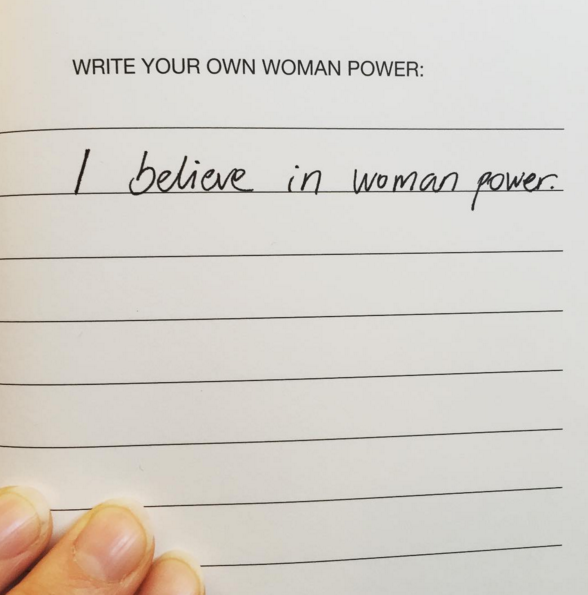 WRITE YOUR OWN WOMAN POWER:
I believe in woman power.